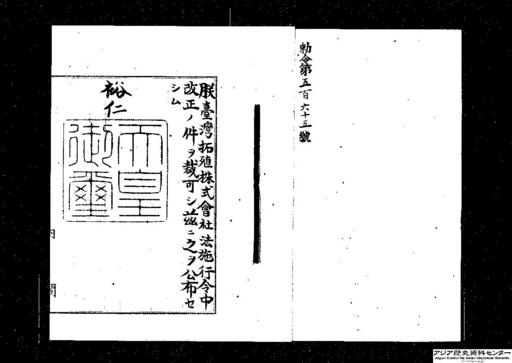 勅令第五百六十三號
朕臺灣拓殖株式會社法施行令中
改正ノ件ヲ裁可シ茲ニ之ヲ公布セ
シム
裕仁
天皇
御璽
内閣
アジア歴史資料センター
Japan Center for Asian Historical Records